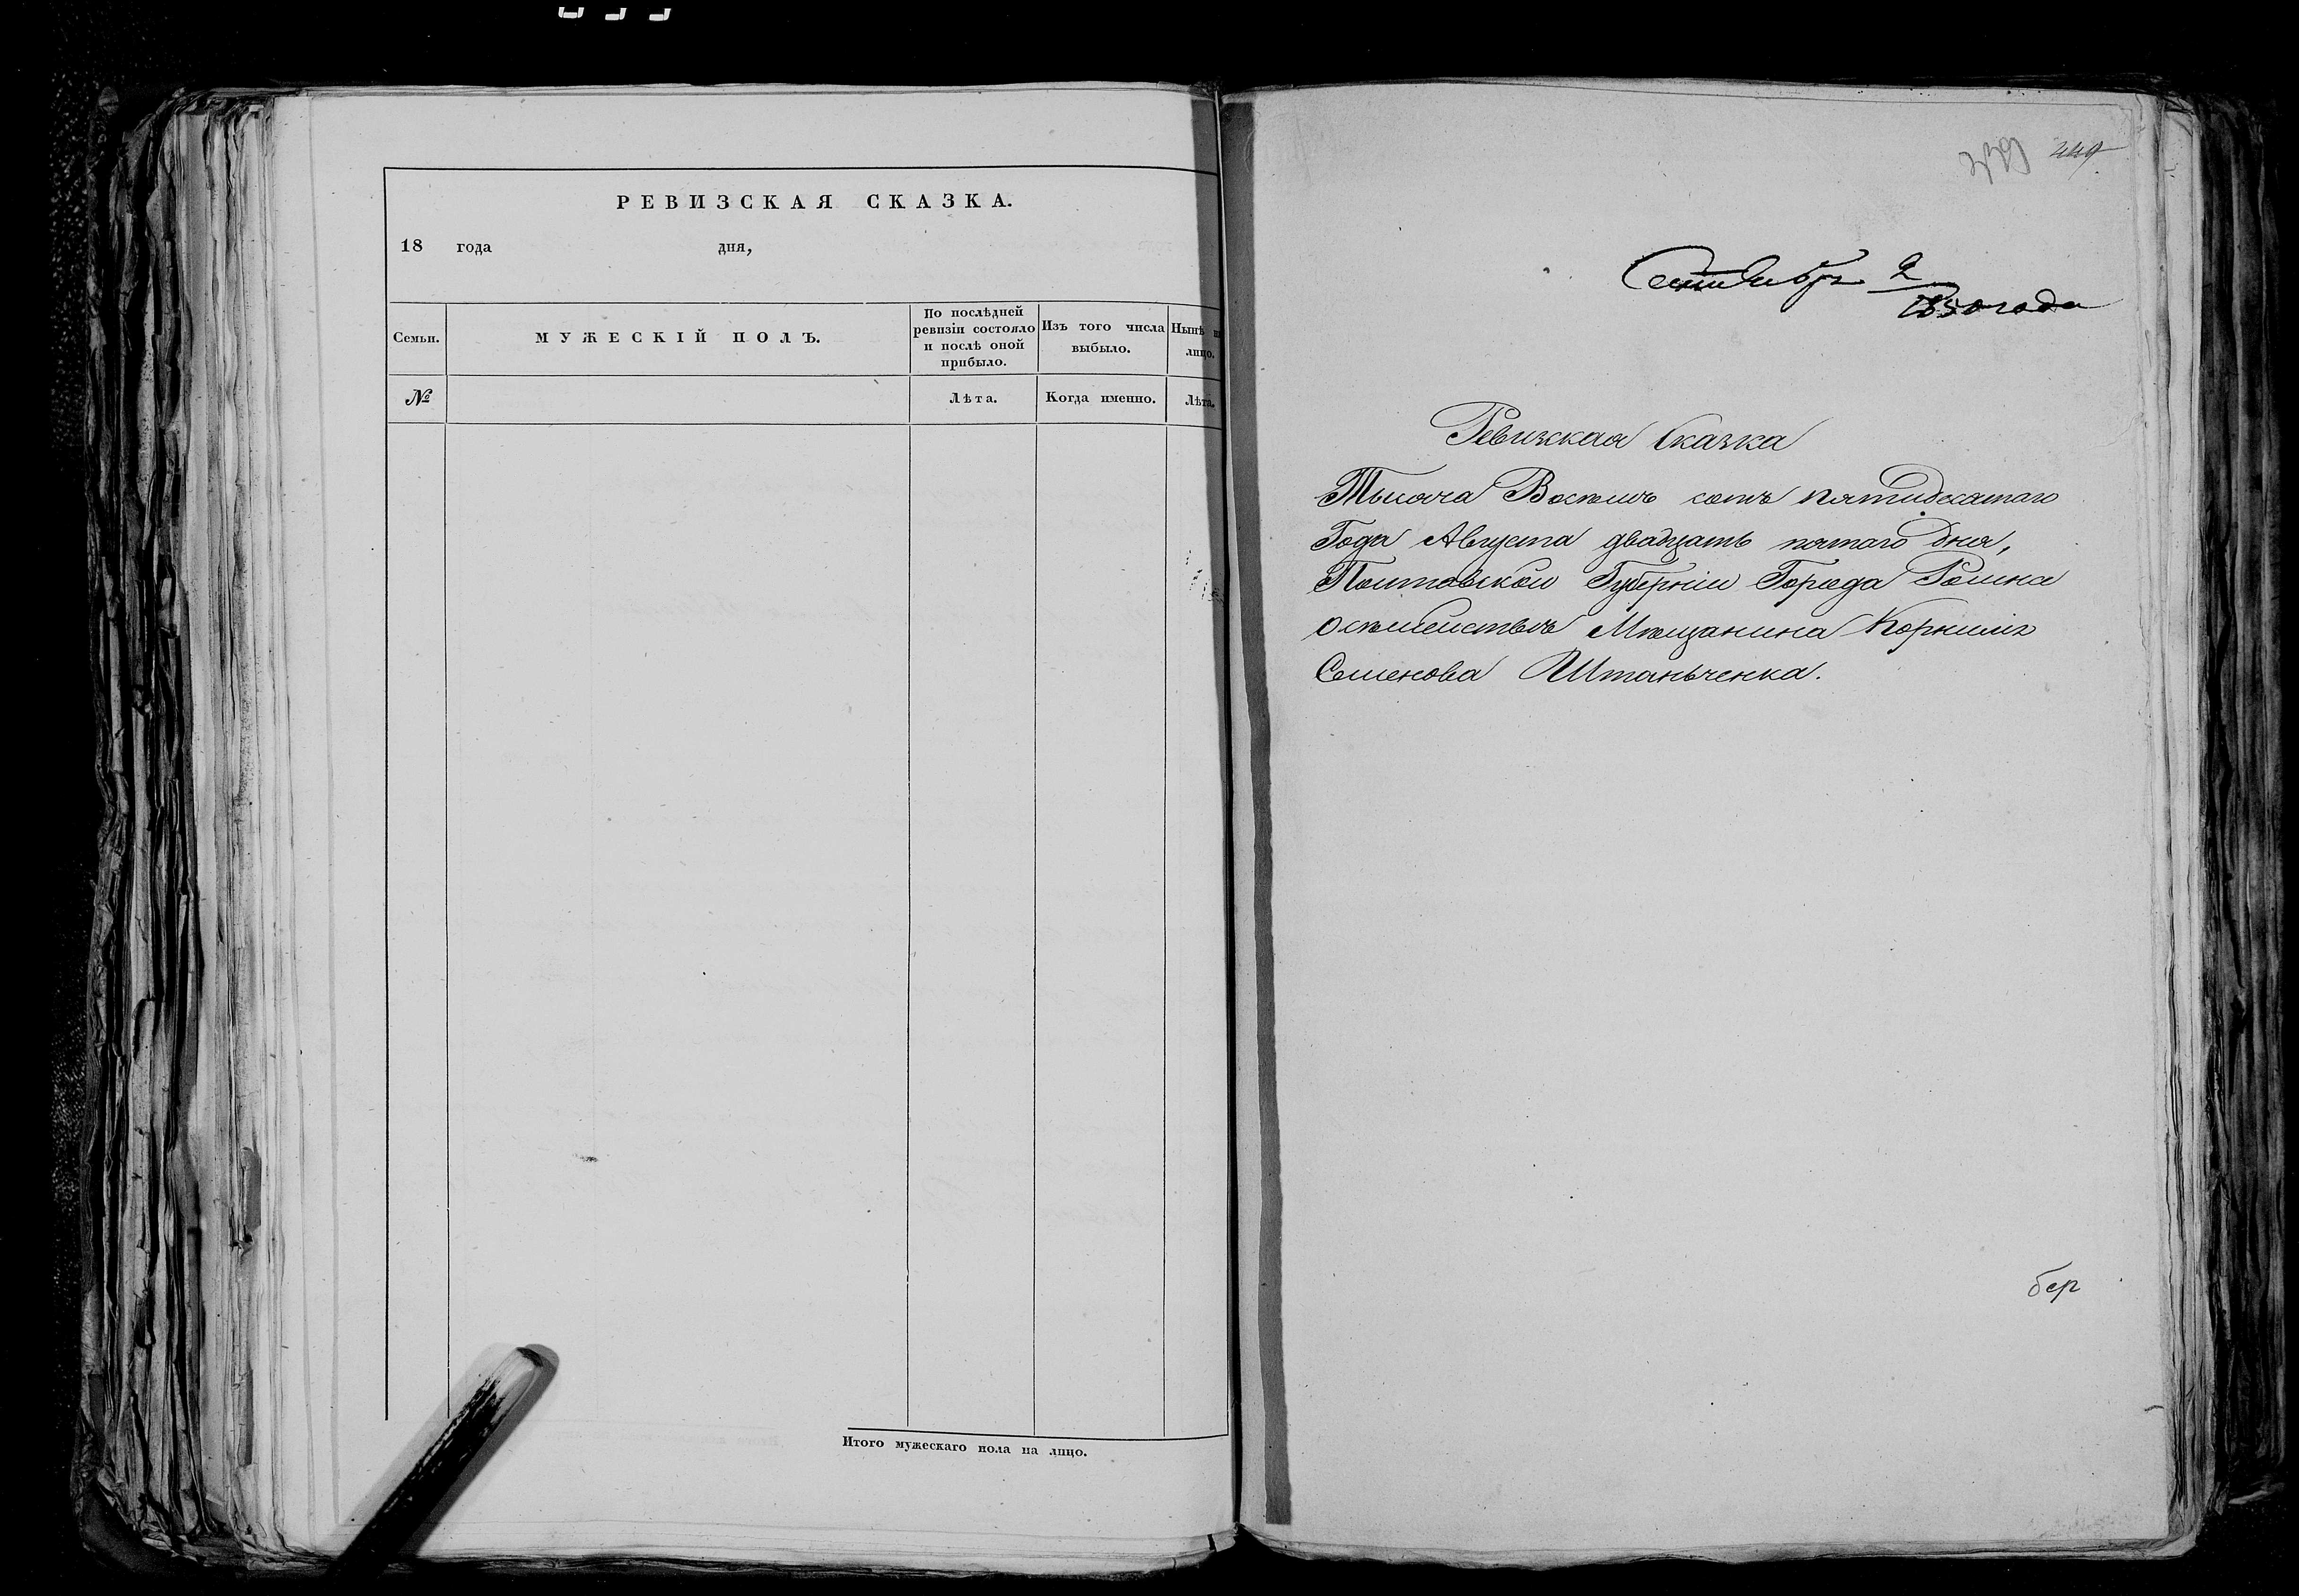 РЕВИЗСКАЯ СКАЗКА.
18 года дня,
Семьи.
МУЖЕСКІЙ ПОЛЪ.
По послѣдней ревизіи состояло и послѣ оной прибыло.
Изъ того числа выбыло.
Нынѣ на лицо.
№
Лѣта.
Когда именно.
Лѣта.
Итого мужескаго пола на лицо.
449
Сентября 2
1850 года
Ревизкая Сказка
Тысяча Восемъ сотъ пятидесятаго
Года Августа двадцать пятаго Дня,
Полтавской Губерніи Города Ромна
о семействѣ Мѣщанина Корнилія
Семенова Штаньченка.
бер